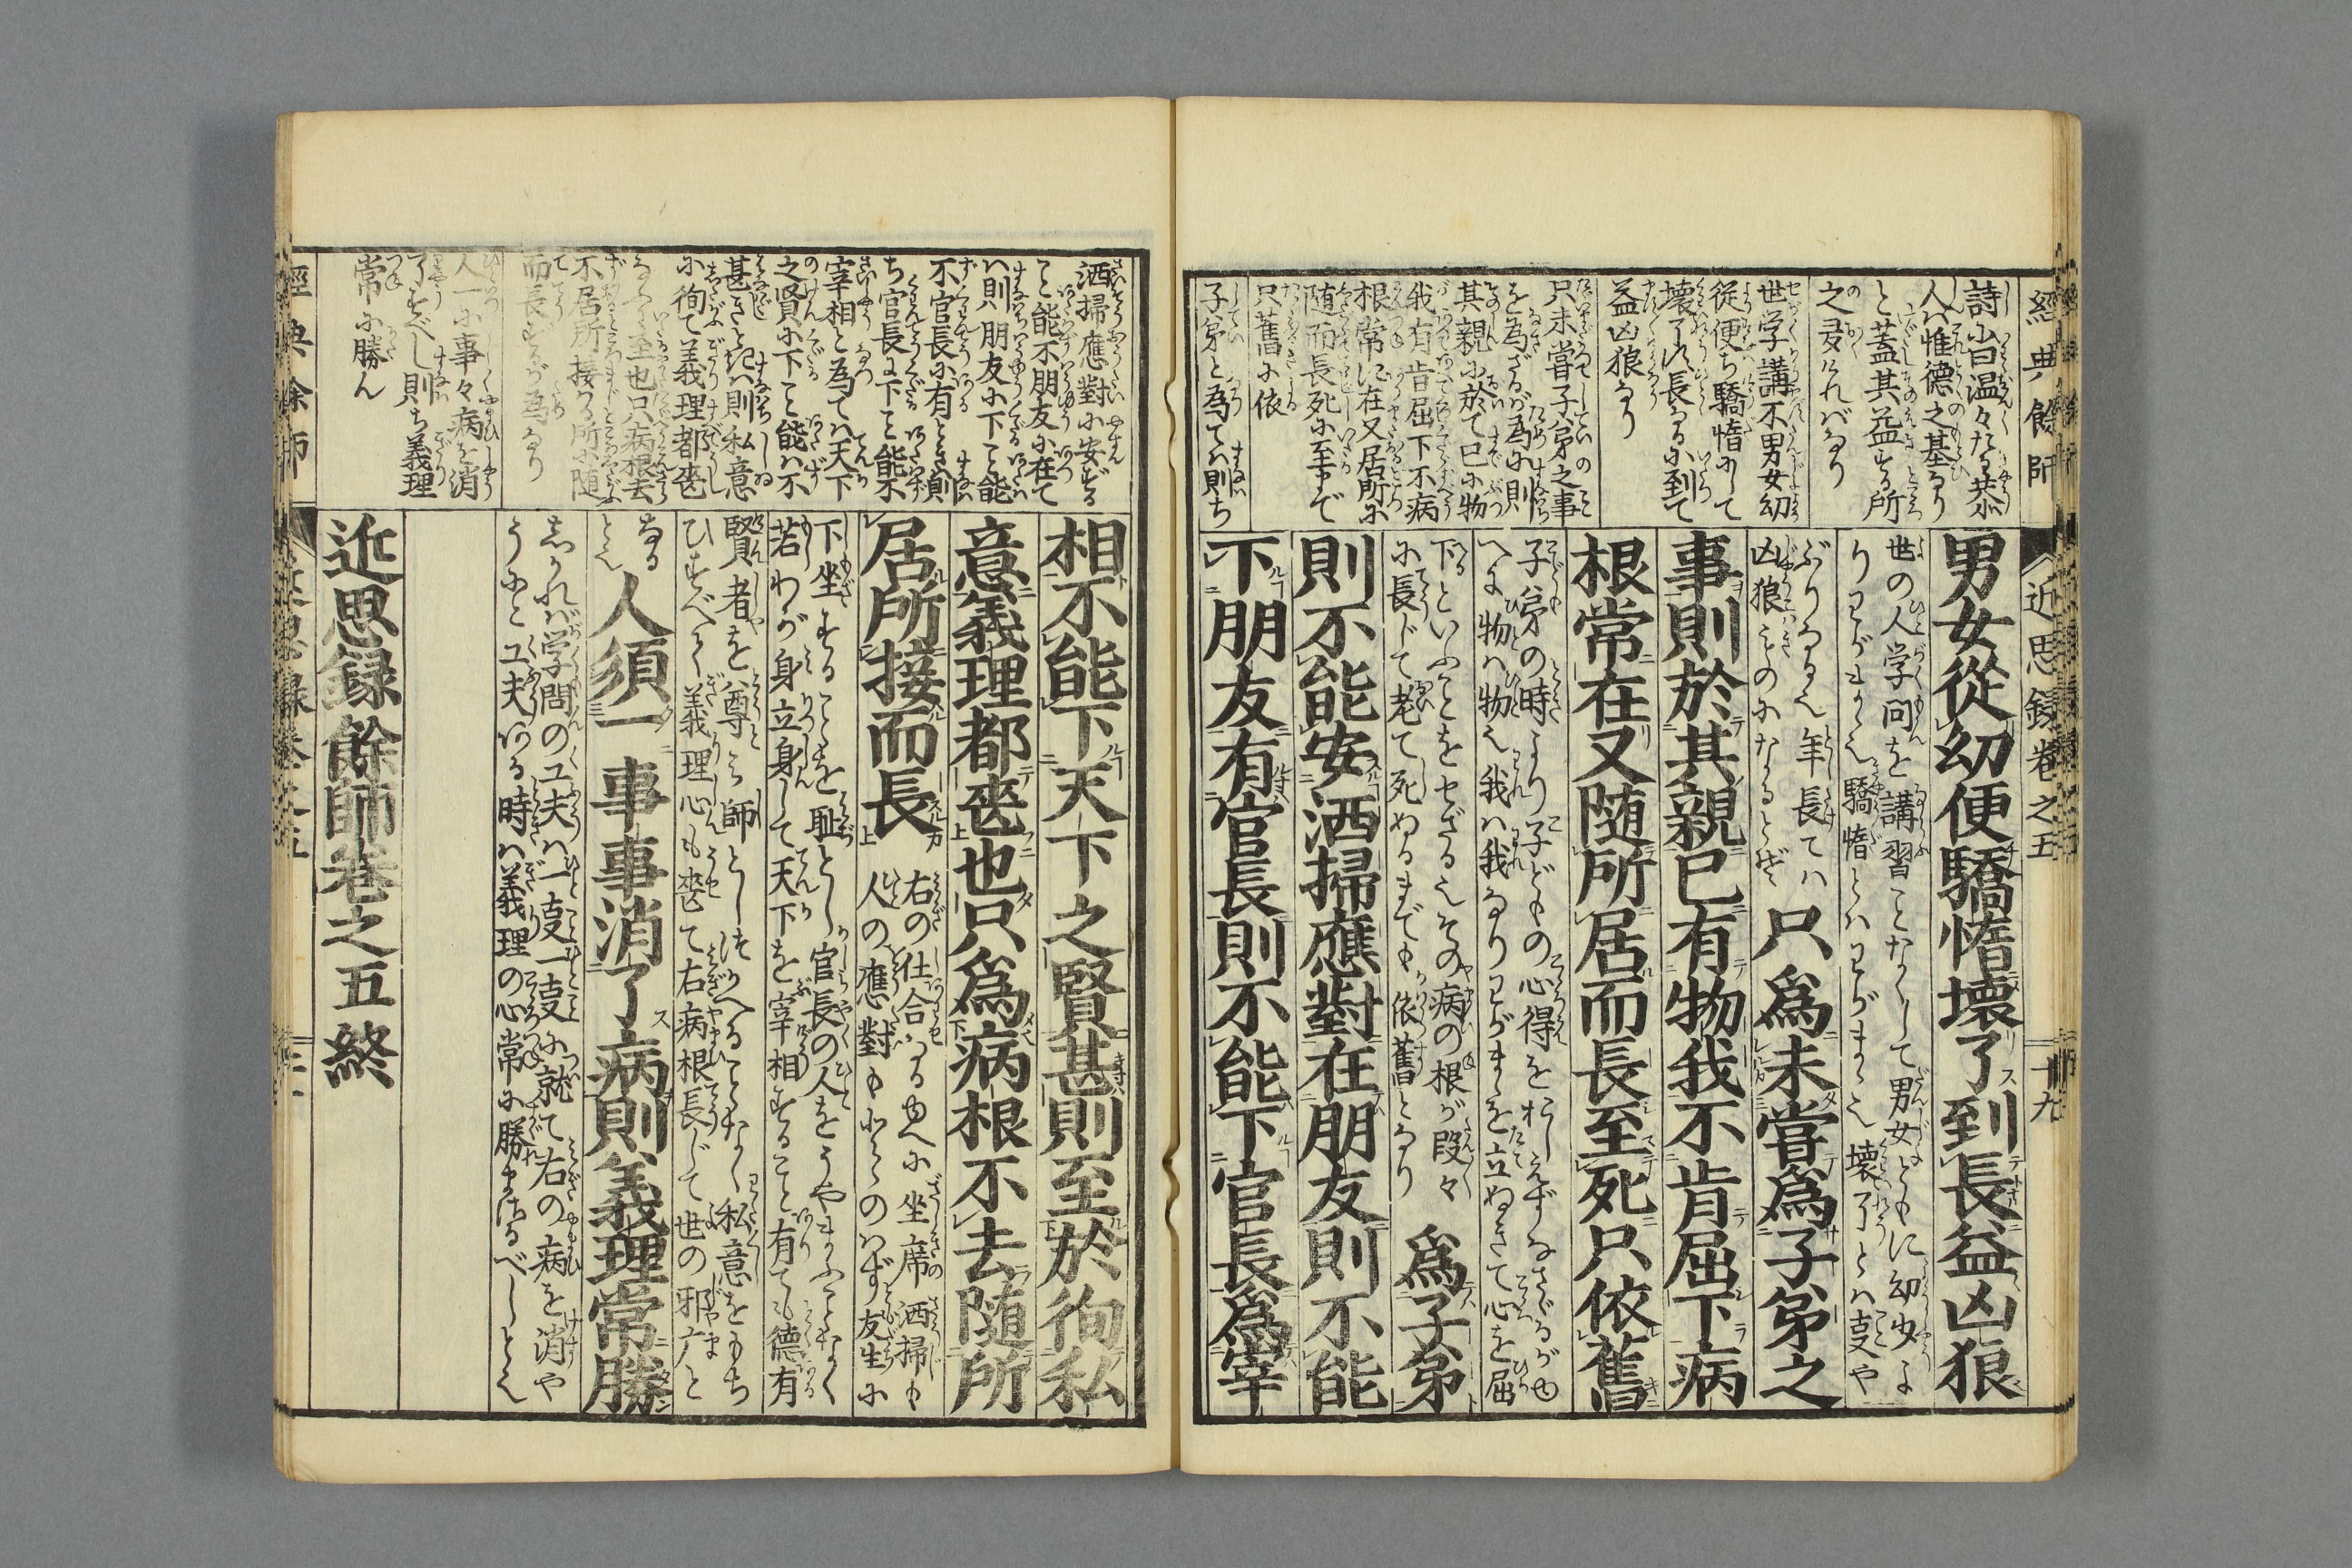 經典餘師
近思録卷之五
十九
詩に曰温々たる恭
人は惟德之基なり
と蓋其益する所
之爻けれバなり
世学講不男女幼
從便ち驕惰にして
壊了ル長なるに到て
益凶狼なり
只未嘗子弟之事
を為ざるが為に則
其親に於て已に物
我有肯屈下不病
根常に在又居所に
随而長死に至まで
只舊に依
子弟と為てハ則ち
男女從幼便驕惰壊了到長益凶狼
世の人学問を講習ことなくして男女ともに幼少よ
りわがまゝゆへ驕惰とハわがまゝゆへ壊了とハ事や
ぶりなるゆへ年長てハ
凶狼ものになるとぞ
只爲未嘗爲子弟之
事則於其親已有物我不肯屈下病
根常在又随所居而長至死只依舊
子弟の時より子どもの心得をおしえずなさざるがゆ
へに物ハ物ゆへ我ハ我なりわがまゝを立ぬきて心を屈
下るといふことをせざるゆへその病の根が段々
に長じて老て死ぬるまでも依舊となり
爲子弟
則不能安洒掃應對在朋友則不能
下朋友有官長則不能下官長爲宰
洒掃應對に安ずる
こと能不朋友に在て
ハ則朋友に下こと能
不官長に有とき則
ち官長に下こと能不
宰相と為てハ天下
之賢に下こと能ハ不
甚きときハ則私意
に徇て義理都喪
なるに至也只病根去
不居所接る所に随
而長ずるが為なり
人一に事々病を消
了すべし則ち義理
常に勝ん
相不能下天下之賢甚則至於徇私
意義理都喪也只爲病根不去随所
居所接而長
右の仕合なるゆへに坐席の洒掃も
人の應對もおとなのハず友生に
下坐することを耻とし官長の人をうやまふことなく
若わが身立身して天下を宰相することと有ても德有
賢者を尊み師としつかへることなく私意をもち
ひすべて義理心も喪て右病根長じて世の邪广と
なる
とぞ
人須一事事消了病則義理常勝
しかれバ学問の工夫ハ一事一事に就て右の病を消や
うにと工夫ある時ハ義理の心常に勝まさるべしとぞ
近思録餘師卷之五終
經典餘師